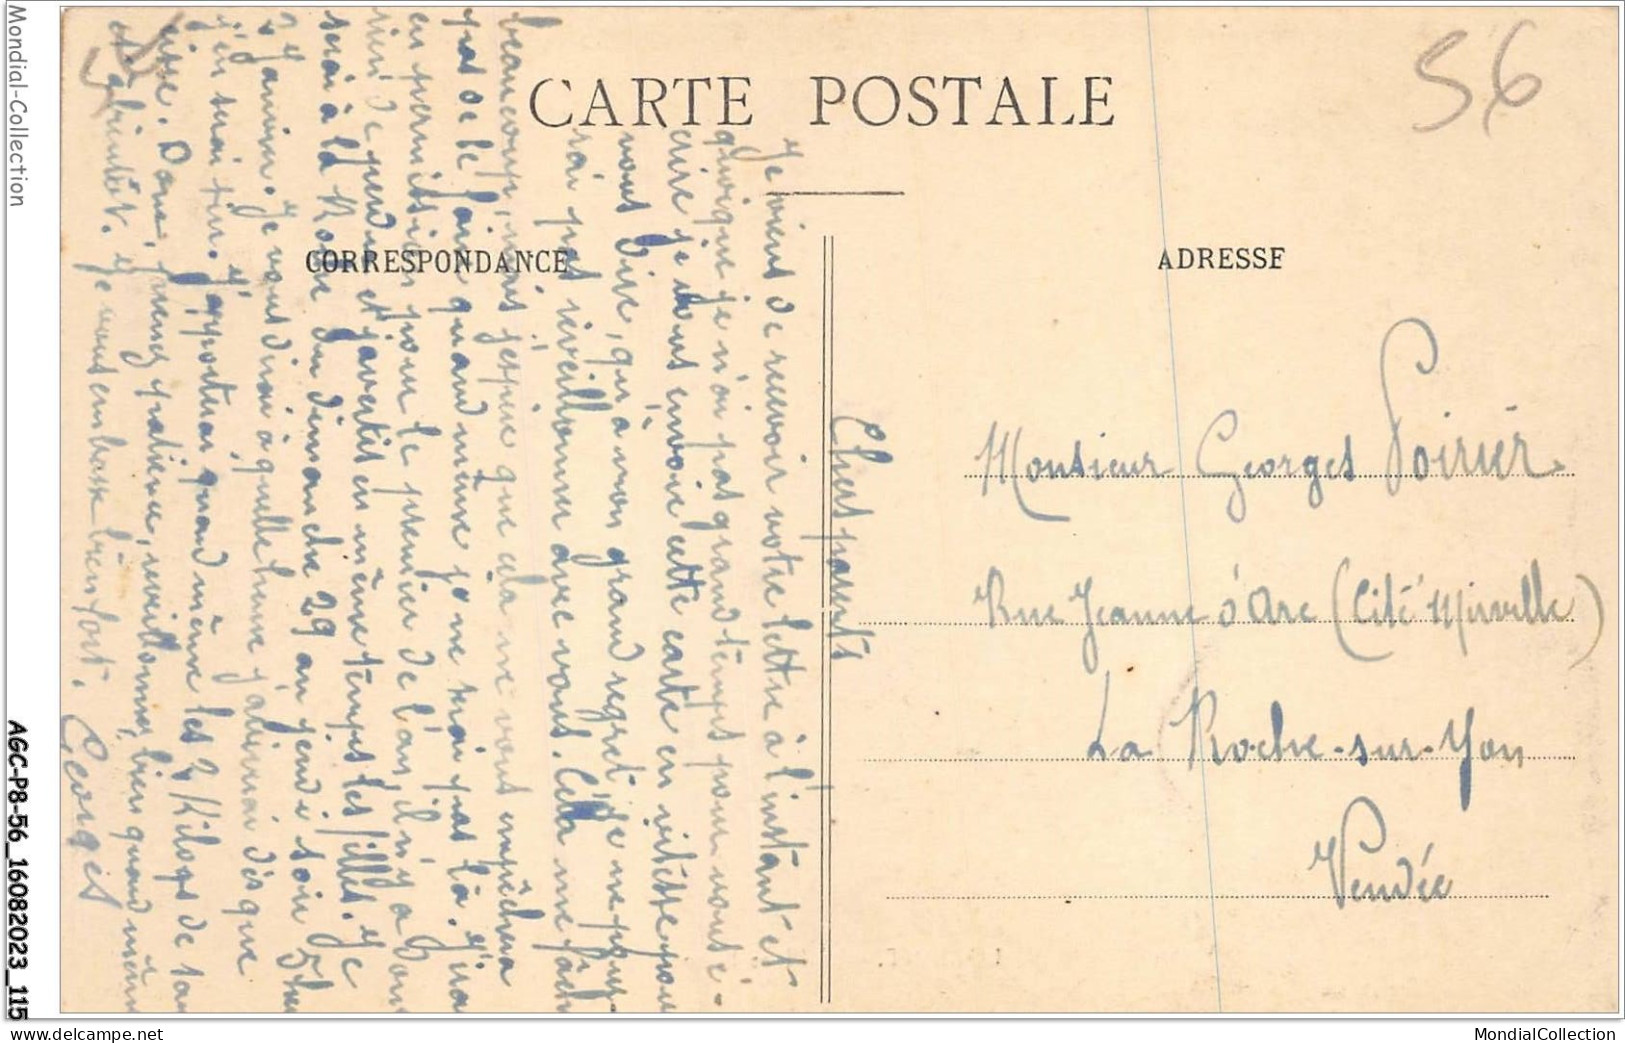 CARTE POSTALE
CORRESPONDANCE
ADRESSE
56
Chers parents
Je viens de recevoir votre lettre à l'instant et
quoique je n'ai pas grand temps pour vous é-
crire je vous envoie cette carte en vitesse pour
vous dire, qu'à mon grand regret je ne pour-
rai pas réveillonner avec vous. Cela me fâch
beaucoup, mais j'espère que cela ne vous empêchera
pas de le faire quand même je ne serai pas là. J'irai
en permission pour le premier de l'an, il n'y a donc
rien de perdu et j'avertis en même temps les filles. Je
serai à la Roche du dimanche 29 au jeudi soir
2 Janvier. Je vous dirai à quelle heure j'arriverai dès que
j'en serai sûr. J'apporterai quand même les 2 Kilogs de
Donc, prenez patience, reveillonnez bien quand même
et à bientôt. Je vous embrasse bien fort.
Georges
Monsieur Georges Poirier
Rue Jeanne d'Arc (Cité Mirville)
La Roche-sur-Yon
Vendée
Mondial-Collection
AGC-P8-56_16082023_115
delcampe.net
MondialCollection